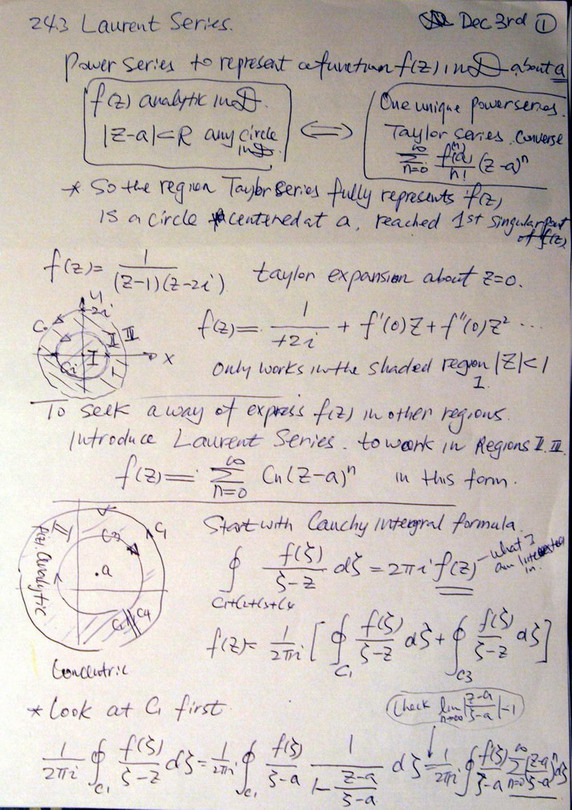 24.3 Laurent Series. Dec 3rd ①
Power series to represent a function f(z) in D about a
f(z) analytic in D.
|z-a|<R any circle
in D
⟺
One unique power series.
Taylor series. converse
∑_{n=0}^{∞} f^{(n)}(a)/n! (z-a)^n
* So the region Taylor series fully represents f(z)
is a circle centered at a, reached 1st singular point
of f(z)
f(z) = 1/((z-1)(z-2i)) taylor expansion about z=0.
y
2i
C₁
II III
I
x
f(z) = 1/(+2i) + f'(0)z + f''(0)z² ...
only works in the shaded region |z|<1
I.
To seek a way of express f(z) in other regions.
Introduce Laurent Series. to work in Regions II. III.
f(z) = ∑_{n=0}^{∞} Cn(z-a)^n in this form.
Start with Cauchy integral formula
II
C₃
C₁
f(z) Analytic
.a
C₄
Concentric
∮_{C₁+C₂+C₃+C₄} f(ζ)/(ζ-z) dζ = 2πi f(z) - what I
am interested
in.
f(z) = 1/(2πi) [∮_{C₁} f(ζ)/(ζ-z) dζ + ∮_{C₃} f(ζ)/(ζ-z) dζ]
* Look at C₁ first
Check lim_{n→∞} |(z-a)/(ζ-a)|<1
1/(2πi) ∮_{C₁} f(ζ)/(ζ-z) dζ = 1/(2πi) ∮_{C₁} f(ζ)/(ζ-a) 1/(1-(z-a)/(ζ-a)) dζ = 1/(2πi) ∮ f(ζ)/(ζ-a) ∑_{n=0}^{∞} [(z-a)/(ζ-a)]^n dζ